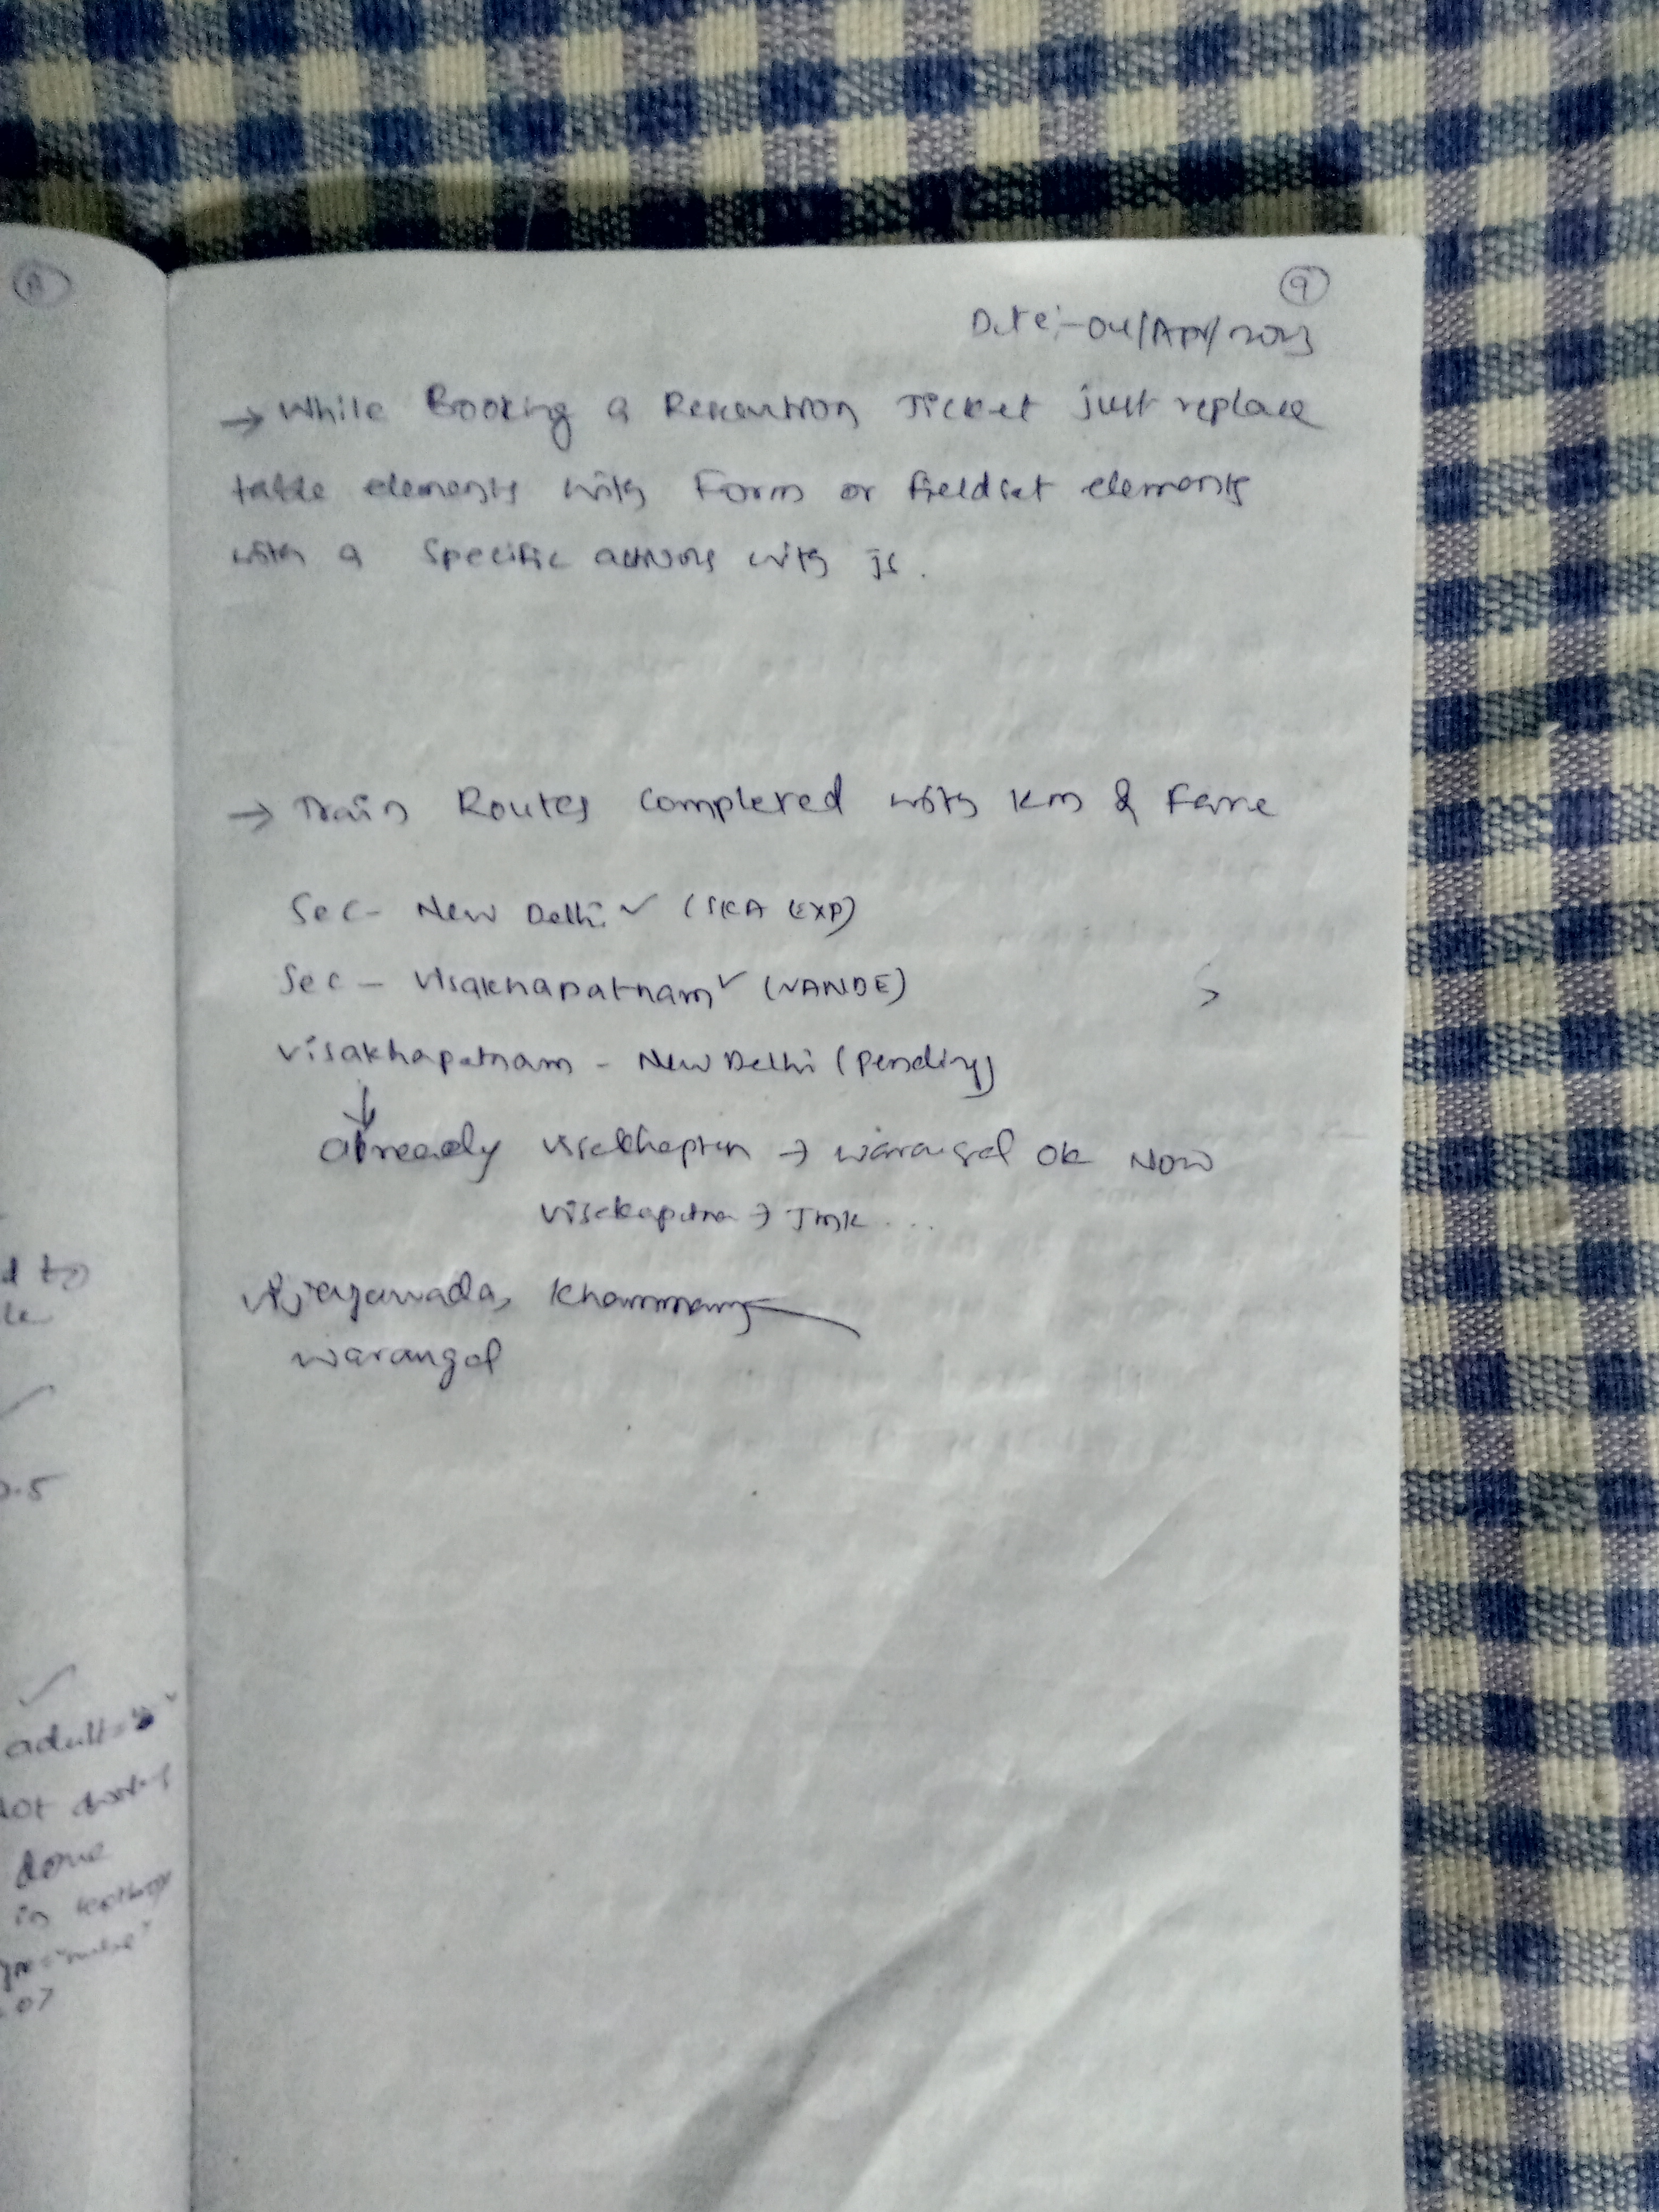 9
Date:-04/Apr/2023
→ While Booking a Reservation Ticket just replace
table elements with Form or fieldset elements
with a specific actions with js.
→ Train Routes completed with km & Fare
Sec- New Delhi ✓ (SKA EXP)
Sec - Visakhapatnam ✓ (VANDE)
Visakhapatnam - New Delhi (pending)
↓
already → warangal ok Now
→ Tmk ...
Vijayawada, Khammam
warangal
d to
le
✓
0.5
✓
adult=
not
done
in
07